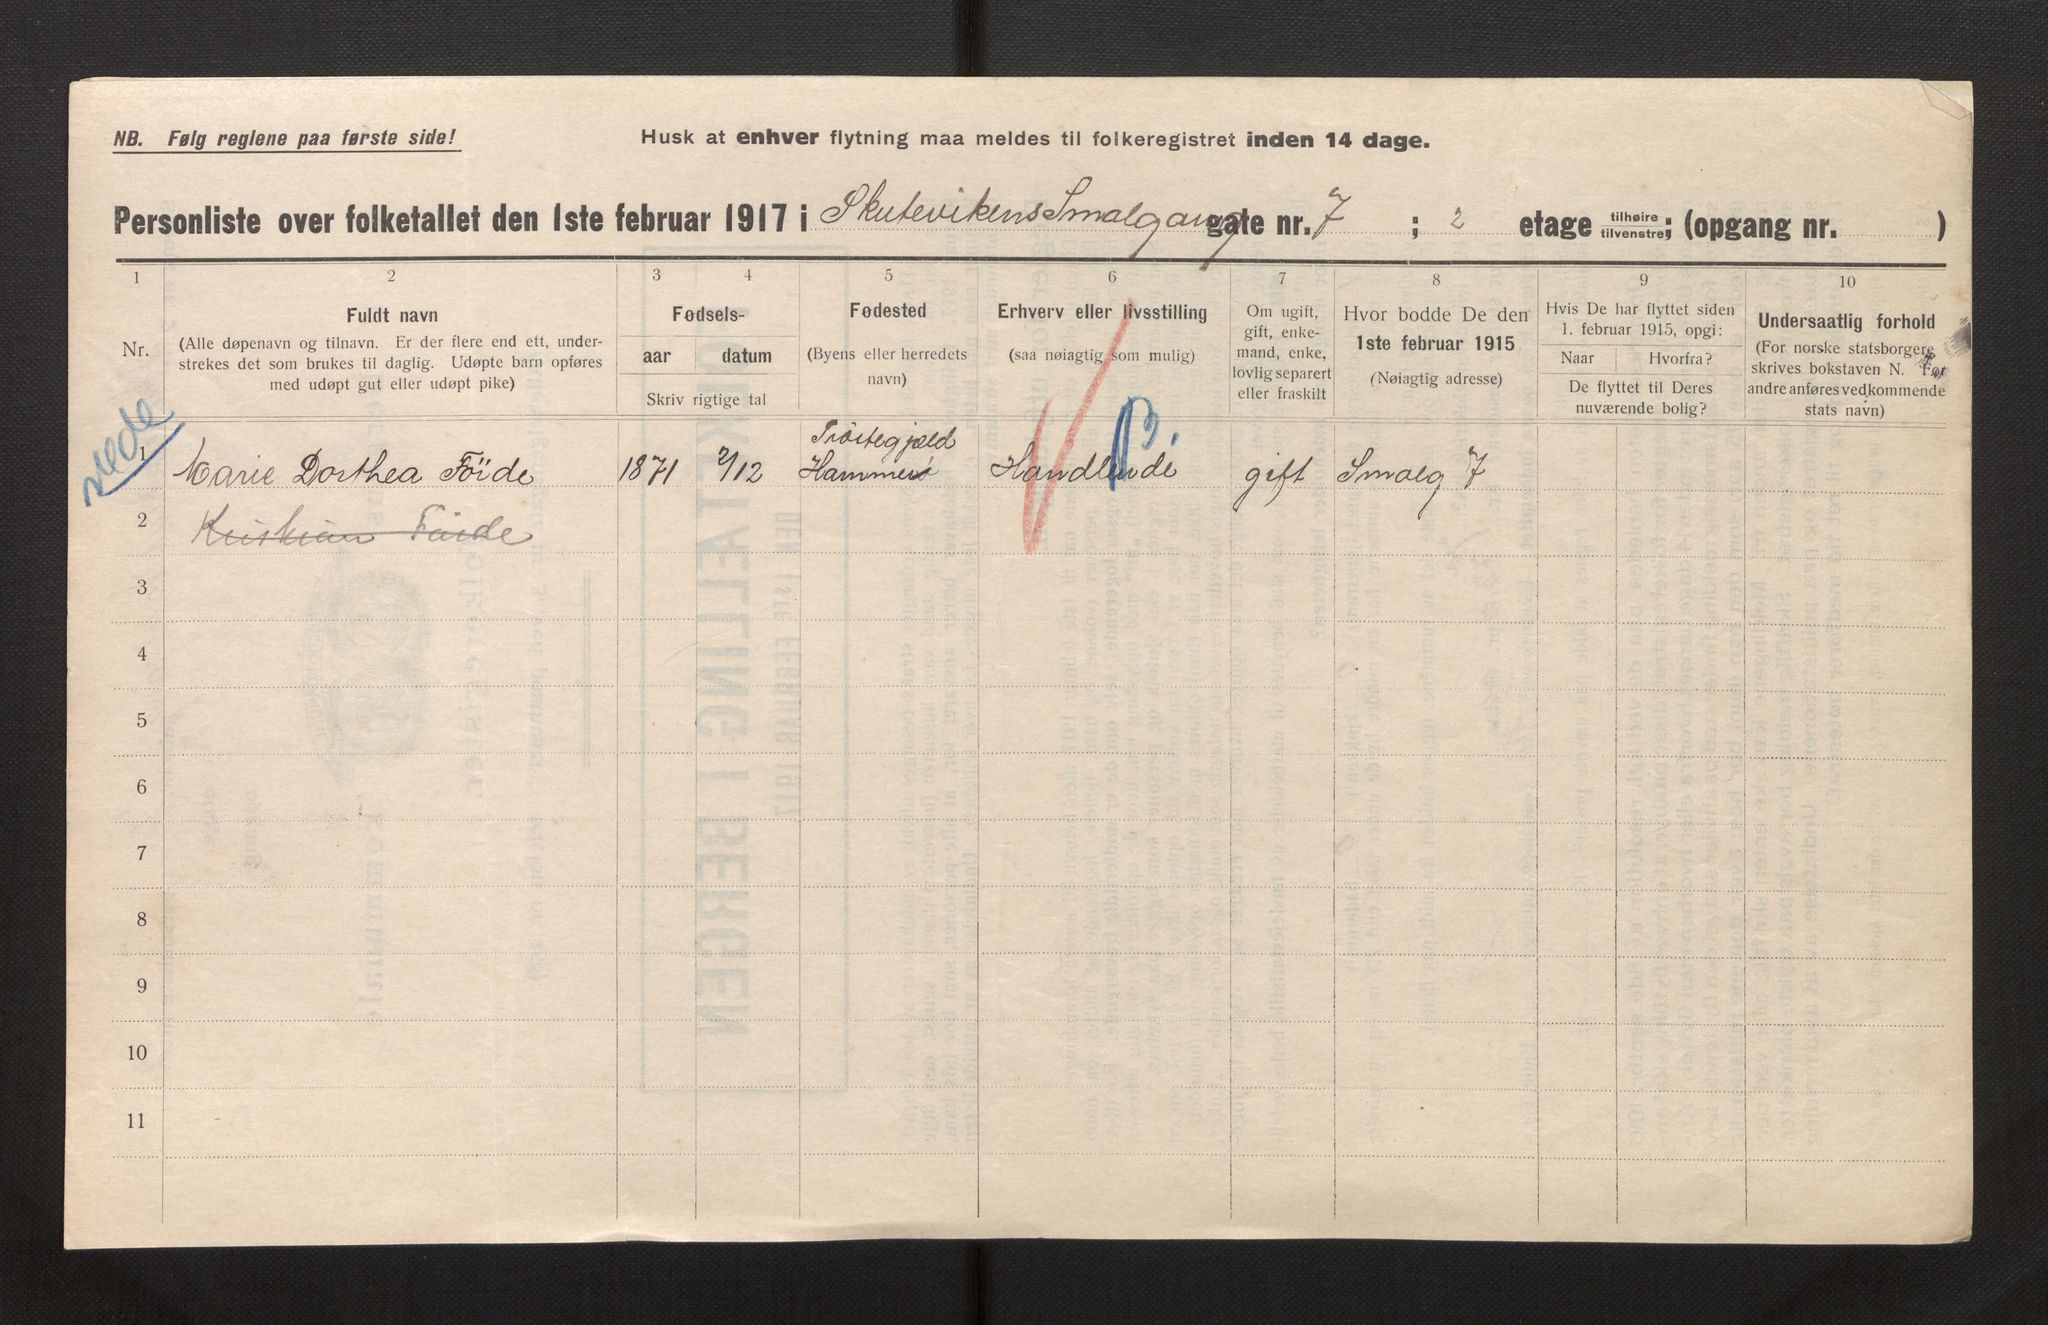 NB. Følg reglene paa første side!
Husk at enhver flytning maa meldes til folkeregistret inden 14 dage.
Personliste over folketallet den 1ste februar 1917 i Skutevikens Smalgang gate nr. 7 ; 2 etage tilhøire tilvenstre; (opgang nr. )
1 2 3 4 5 6 7 8 9 10
Nr.
Fuldt navn
(Alle døpenavn og tilnavn. Er der flere end ett, under-
strekes det som brukes til daglig. Udøpte barn opføres
med udøpt gut eller udøpt pike)
Fødsels-
aar datum
Skriv rigtige tal
Fødested
(Byens eller herredets
navn)
Erhverv eller livsstilling
(saa nøiagtig som mulig)
Om ugift,
gift, enke-
mand, enke,
lovlig separert
eller fraskilt
Hvor bodde De den
1ste februar 1915
(Nøiagtig adresse)
Hvis De har flyttet siden
1. februar 1915, opgi:
Naar Hvorfra?
De flyttet til Deres
nuværende bolig?
Undersaatlig forhold
(For norske statsborgere
skrives bokstaven N. For
andre anføres vedkommende
stats navn)
1 Marie Dorthea Föide 1871 2/12 Hammers Handlende gift Smalg 7
2 Kristian Föide
3
4
5
6
7
8
9
10
11